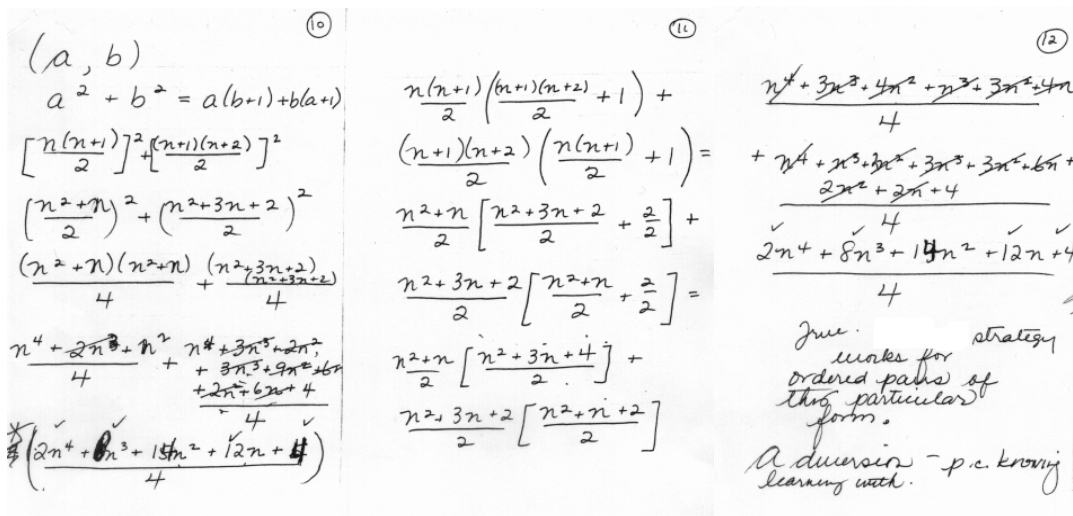 10
(a, b)
a² + b² = a(b+1)+b(a+1)
[n(n+1)/2]² + [(n+1)(n+2)/2]²
((n²+n)/2)² + ((n²+3n+2)/2)²
(n²+n)(n²+n)/4 + (n²+3n+2)(n²+3n+2)/4
(n⁴+2n³+n²)/4 + (n⁴+3n³+2n²+3n³+9n²+6n+2n²+6n+4)/4
(2n⁴+8n³+14n²+12n+4)/4
11
n(n+1)/2 ((n+1)(n+2)/2 + 1) +
(n+1)(n+2)/2 (n(n+1)/2 + 1) =
(n²+n)/2 [(n²+3n+2)/2 + 2/2] +
(n²+3n+2)/2 [(n²+n)/2 + 2/2] =
(n²+n)/2 [(n²+3n+4)/2] +
(n²+3n+2)/2 [(n²+n+2)/2]
12
(n⁴+3n³+4n²+n³+3n²+4n)/4
+ (n⁴+n³+2n²+3n³+3n²+6n+2n²+2n+4)/4
(2n⁴+8n³+14n²+12n+4)/4
True. strategy
works for
ordered pairs of
this particular
form.
A diversion - p.c. knowing
learning with.